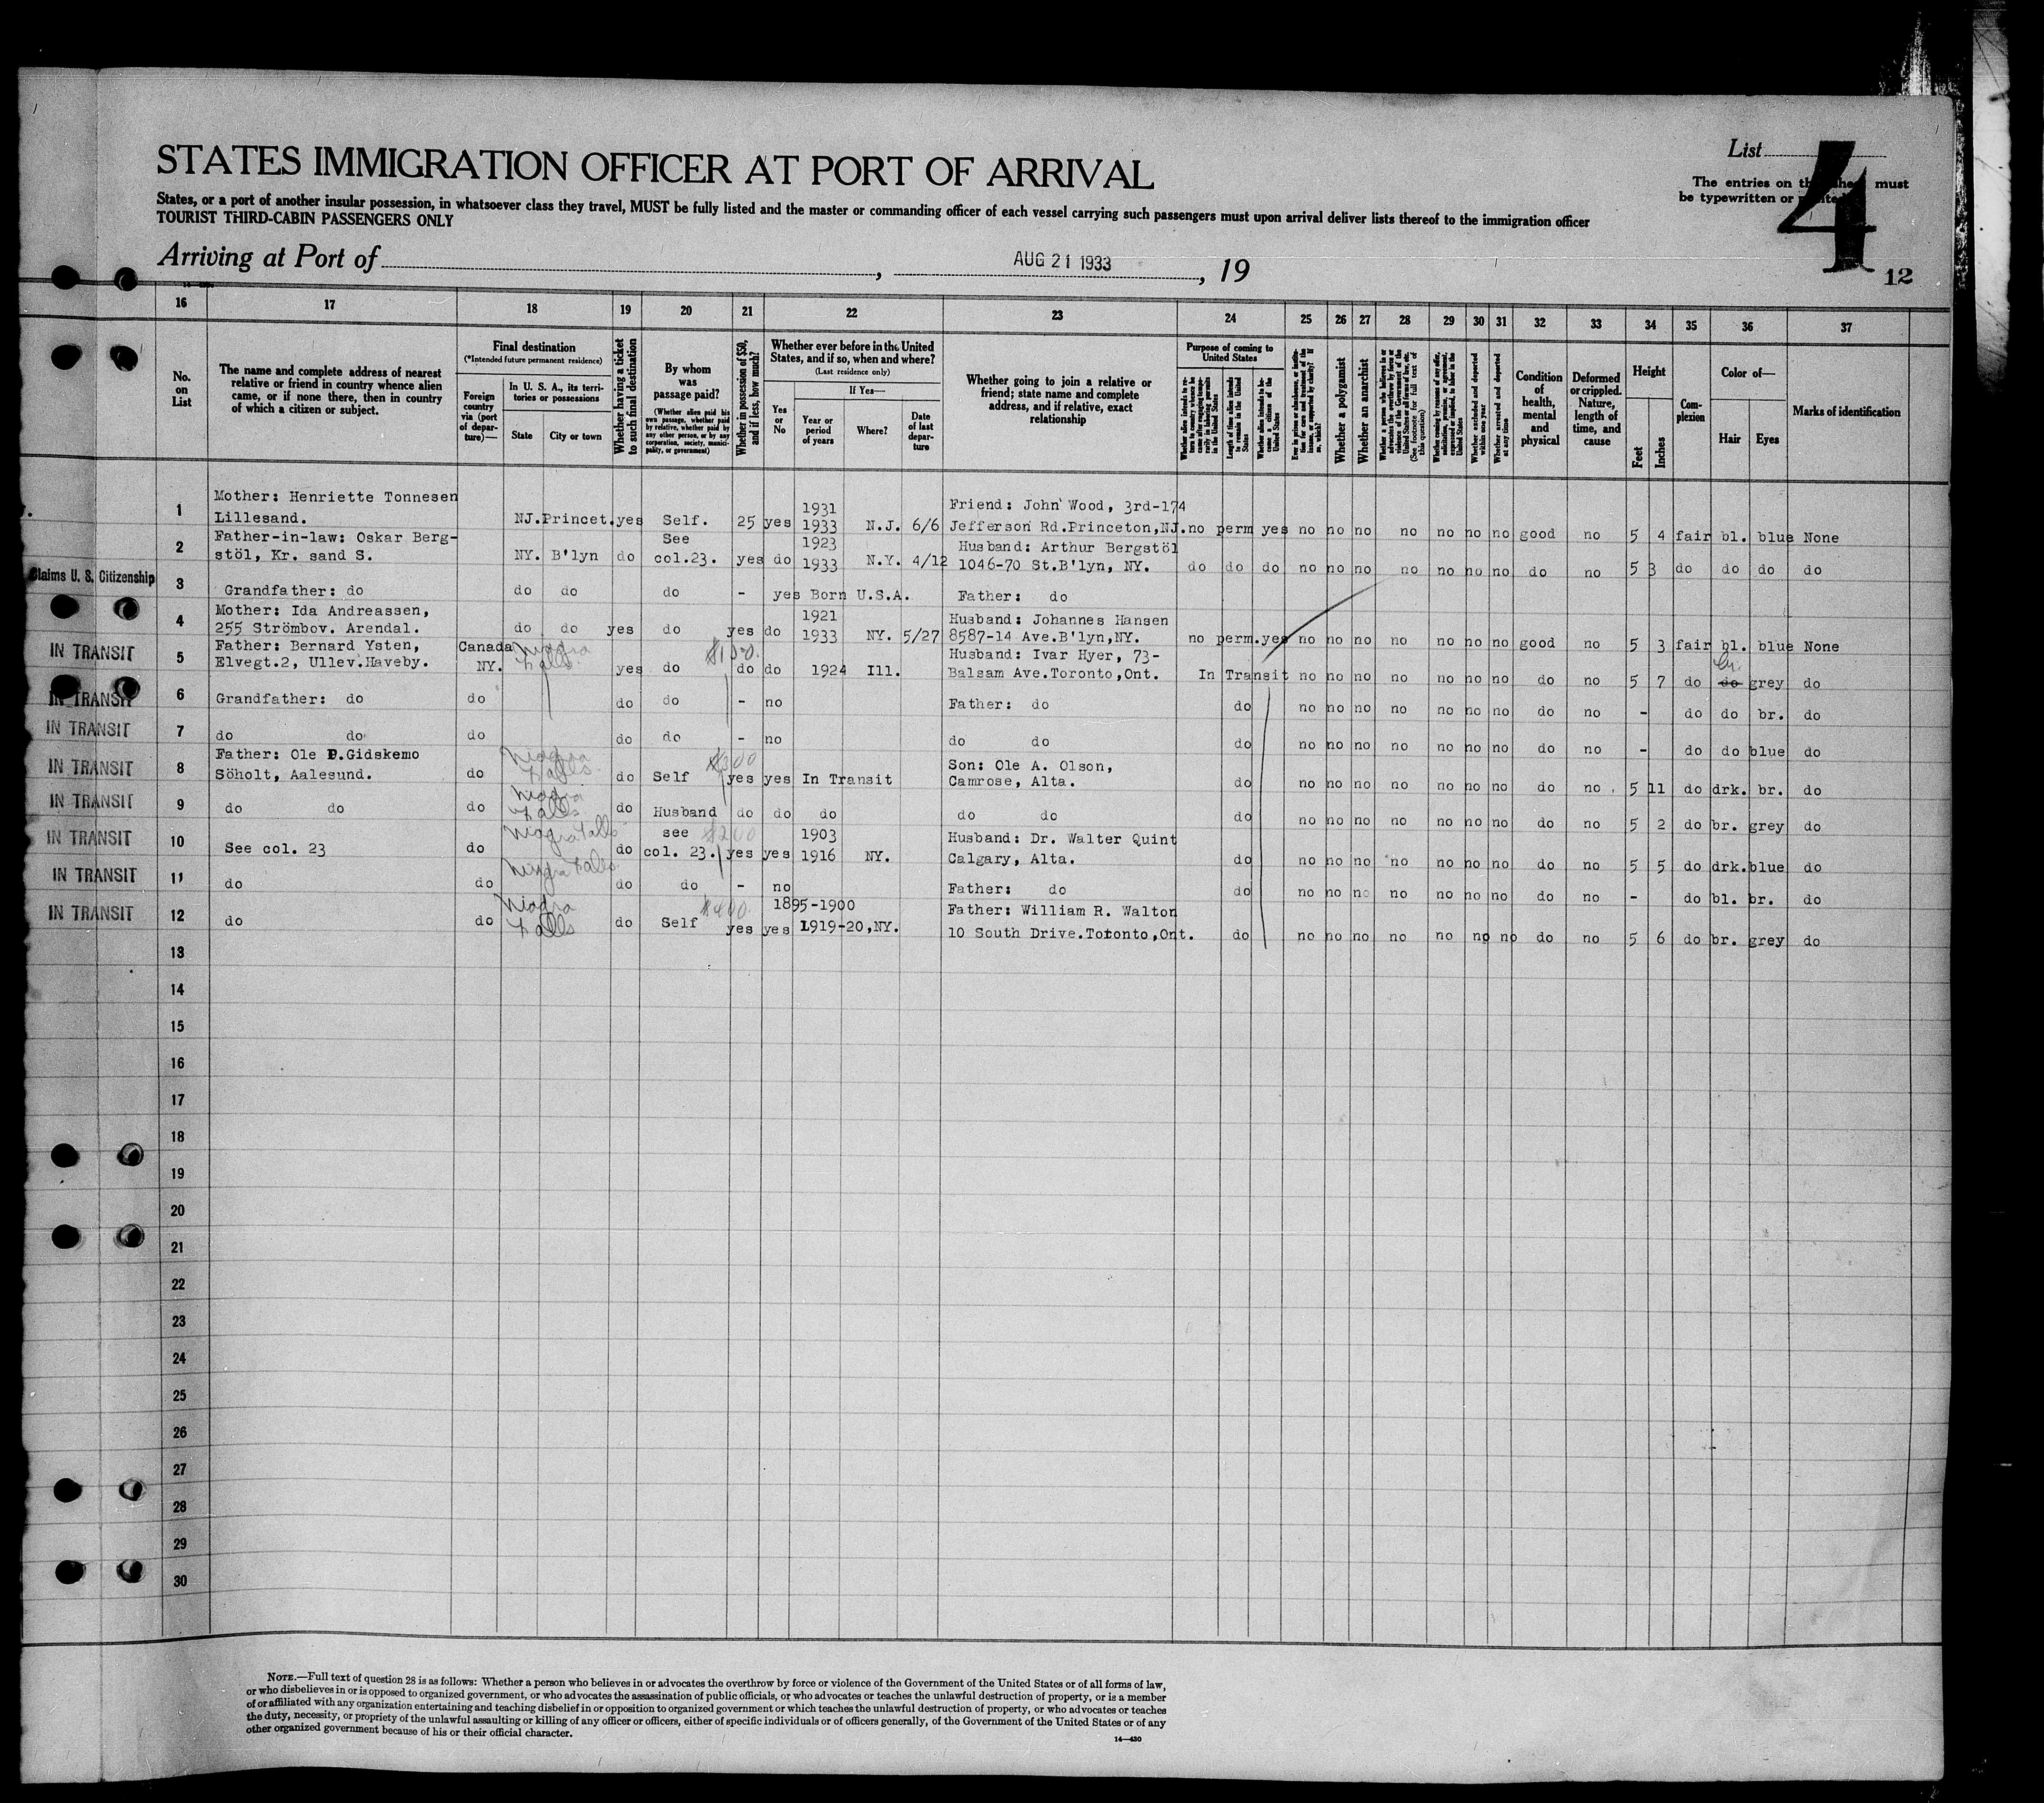 STATES IMMIGRATION OFFICER AT PORT OF ARRIVAL
List
4
The entries on this sheet must
be typewritten or printed
States, or a port of another insular possession, in whatsoever class they travel, MUST be fully listed and the master or commanding officer of each vessel carrying such passengers must upon arrival deliver lists thereof to the immigration officer
TOURIST THIRD-CABIN PASSENGERS ONLY
Arriving at Port of , AUG 21 1933 , 19
12
16 17 18 19 20 21 22 23 24 25 26 27 28 29 30 31 32 33 34 35 36 37
No. on List
The name and complete address of nearest relative or friend in country whence alien came, or if none there, then in country of which a citizen or subject.
Final destination
(*Intended future permanent residence)
Foreign country via (port of departure)—
In U. S. A., its territories or possessions
State
City or town
Whether having a ticket to such final destination
By whom was passage paid?
(Whether alien paid his own passage, whether paid by relative, whether paid by any other person, or by any corporation, society, municipality, or government)
Whether in possession of $50, and if less, how much?
Whether ever before in the United States, and if so, when and where?
(Last residence only)
Yes or No
If Yes—
Year or period of years
Where?
Date of last departure
Whether going to join a relative or friend; state name and complete address, and if relative, exact relationship
Purpose of coming to United States
Whether alien intends to return to country whence he came after engaging temporarily in laboring pursuits in the United States
Length of time alien intends to remain in the United States
Whether alien intends to become a citizen of the United States
Ever in prison or almshouse, or institution for care and treatment of the insane, or supported by charity? If so, which?
Whether a polygamist
Whether an anarchist
Whether a person who believes in or advocates the overthrow by force or violence of the Government of the United States or all forms of law, etc. (See footnote for full text of this question)
Whether coming by reason of any offer, solicitation, promise, or agreement, expressed or implied, to labor in the United States
Whether excluded and deported within one year
Whether arrested and deported at any time
Condition of health, mental and physical
Deformed or crippled. Nature, length of time, and cause
Height
Feet
Inches
Complexion
Color of—
Hair
Eyes
Marks of identification
1 Mother: Henriette Tonnesen Lillesand. NJ. Princet. yes Self. 25 yes 1931 1933 N.J. 6/6 Friend: John Wood, 3rd-174 Jefferson Rd.Princeton,NJ. no perm yes no no no no no no no good no 5 4 fair bl. blue None
2 Father-in-law: Oskar Berg-stöl, Kr. sand S. NY. B'lyn do See col.23. yes do 1923 1933 N.Y. 4/12 Husband: Arthur Bergstöl 1046-70 St.B'lyn, NY. do do do no no no no no no no do no 5 3 do do do do
Claims U. S. Citizenship
3 Grandfather: do do do do - yes Born U.S.A. Father: do
4 Mother: Ida Andreassen, 255 Strömbov. Arendal. do do yes do yes do 1921 1933 NY. 5/27 Husband: Johannes Hansen 8587-14 Ave.B'lyn,NY. no perm. yes no no no no no no no good no 5 3 fair bl. blue None
IN TRANSIT 5 Father: Bernard Ysten, Elvegt.2, Ullev.Haveby. Canada NY. Niagra Falls. yes do $100. do do 1924 Ill. Husband: Ivar Hyer, 73-Balsam Ave.Toronto,Ont. In Transit no no no no no no no do no 5 7 do do grey do
IN TRANSIT 6 Grandfather: do do do do - no Father: do do no no no no no no no do no - do do br. do
IN TRANSIT 7 do do do do do - no do do do no no no no no no no do no - do do blue do
IN TRANSIT 8 Father: Ole P.Gidskemo Söholt, Aalesund. do Niagra Falls. do Self $300 yes yes In Transit Son: Ole A. Olson, Camrose, Alta. do no no no no no no no do no 5 11 do drk. br. do
IN TRANSIT 9 do do do Niagra Falls do Husband do do do do do do no no no no no no no do no 5 2 do br. grey do
IN TRANSIT 10 See col. 23 do Niagra Falls do see col. 23. $200 yes yes 1903 1916 NY. Husband: Dr. Walter Quint Calgary, Alta. do no no no no no no no do no 5 5 do drk. blue do
IN TRANSIT 11 do do Niagra Falls do do - no Father: do do no no no no no no no do no - do bl. br. do
IN TRANSIT 12 do do Niagra Falls do Self $400. yes yes 1895-1900 1919-20,NY. Father: William R. Walton 10 South Drive.Toronto,Ont. do no no no no no no no do no 5 6 do br. grey do
13
14
15
16
17
18
19
20
21
22
23
24
25
26
27
28
29
30
NOTE.—Full text of question 28 is as follows: Whether a person who believes in or advocates the overthrow by force or violence of the Government of the United States or of all forms of law,
or who disbelieves in or is opposed to organized government, or who advocates the assassination of public officials, or who advocates or teaches the unlawful destruction of property, or is a member
of or affiliated with any organization entertaining and teaching disbelief in or opposition to organized government or which teaches the unlawful destruction of property, or who advocates or teaches
the duty, necessity, or propriety of the unlawful assaulting or killing of any officer or officers, either of specific individuals or of officers generally, of the Government of the United States or of any
other organized government because of his or their official character.
14—430